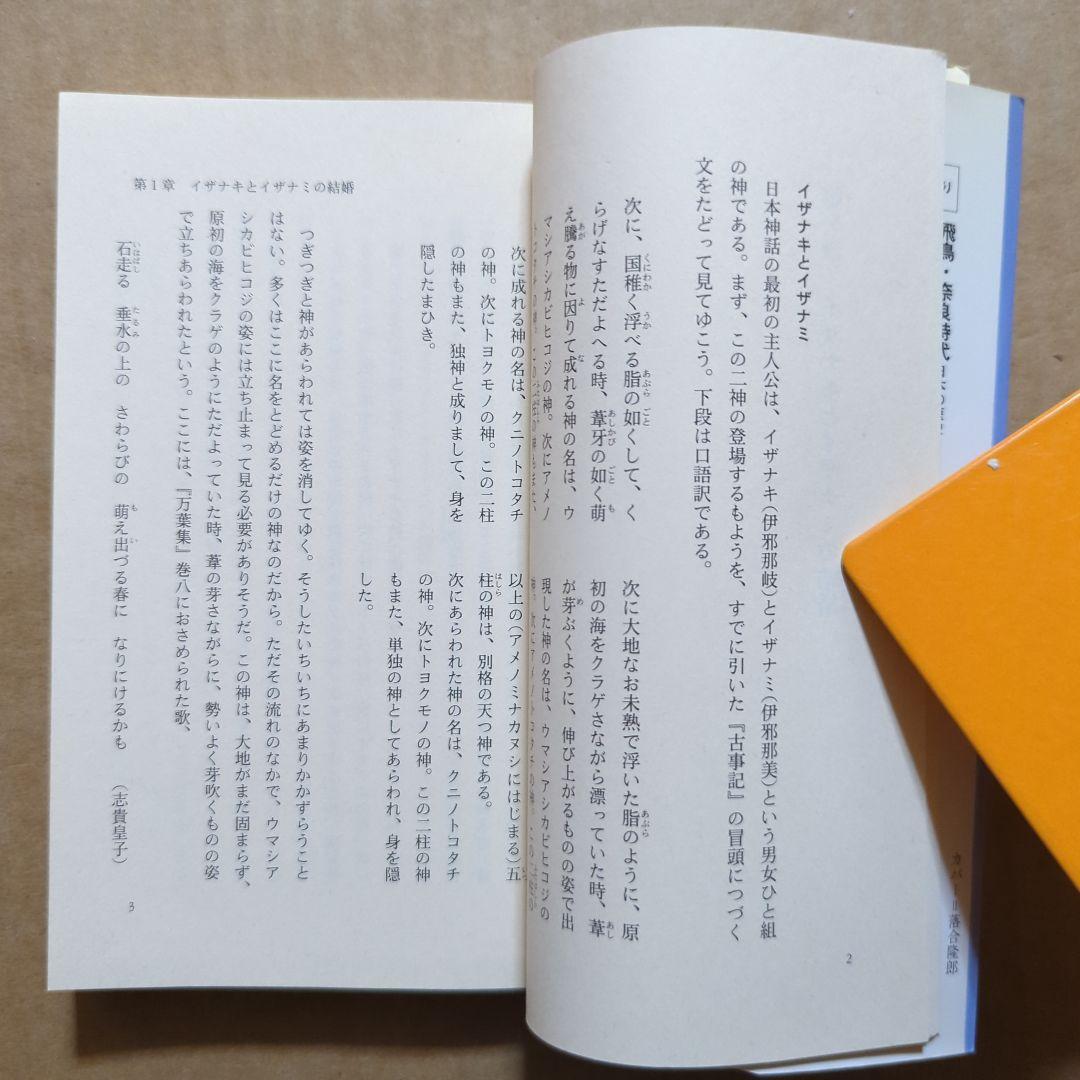 イザナキとイザナミ
日本神話の最初の主人公は、イザナキ(伊邪那岐)とイザナミ(伊邪那美)という男女ひと組
の神である。まず、この二神の登場するもようを、すでに引いた『古事記』の冒頭につづく
文をたどって見てゆこう。下段は口語訳である。
次に、国稚く浮べる脂の如くして、く
らげなすただよへる時、葦牙の如く萌
え騰る物に因りて成れる神の名は、ウ
マシアシカビヒコジの神。次にアメノ
次に大地なお未熟で浮いた脂のように、原
初の海をクラゲさながら漂っていた時、葦
が芽ぶくように、伸び上がるものの姿で出
現した神の名は、ウマシアシカビヒコジの
神。次にアメノトコタチの神。この
2
第1章 イザナキとイザナミの結婚
次に成れる神の名は、クニノトコタチ
の神。次にトヨクモノの神。この二柱
の神もまた、独神と成りまして、身を
隠したまひき。
以上の(アメノミナカヌシにはじまる)五
柱の神は、別格の天つ神である。
次にあらわれた神の名は、クニノトコタチ
の神。次にトヨクモノの神。この二柱の神
もまた、単独の神としてあらわれ、身を隠
した。
つぎつぎと神があらわれては姿を消してゆく。そうしたいちいちにあまりかかずらうこと
はない。多くはここに名をとどめるだけの神なのだから。ただその流れのなかで、ウマシア
シカビヒコジの姿には立ち止まって見る必要がありそうだ。この神は、大地がまだ固まらず、
原初の海をクラゲのようにただよっていた時、葦の芽さながらに、勢いよく芽吹くものの姿
で立ちあらわれたという。ここには、『万葉集』巻八におさめられた歌、
石走る 垂水の上の さわらびの 萌え出づる春に なりにけるかも (志貴皇子)
3
飛鳥・奈良時代
カバー=落合隆郎